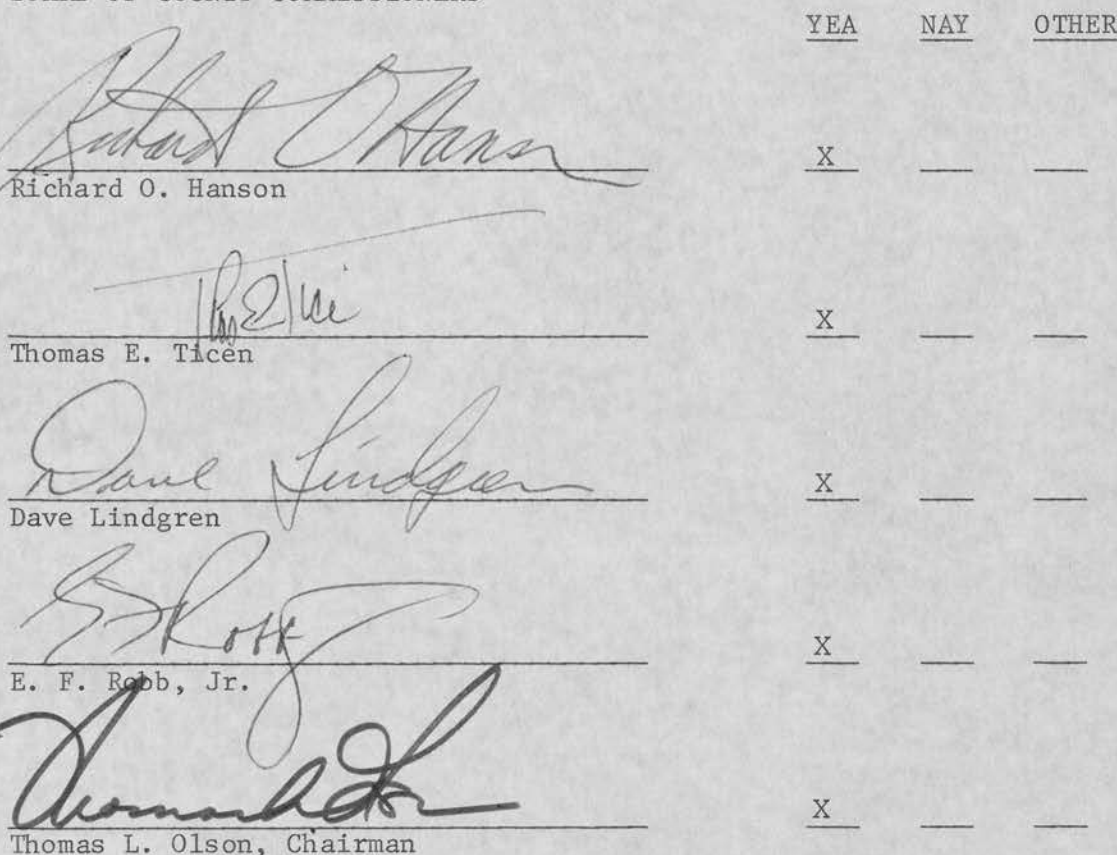 YEA NAY OTHER
Richard O Hanson
X
Richard O. Hanson
X
Thomas E. Ticen
Dave Lindgren
X
Dave Lindgren
X
E. F. Robb, Jr.
X
Thomas L. Olson, Chairman